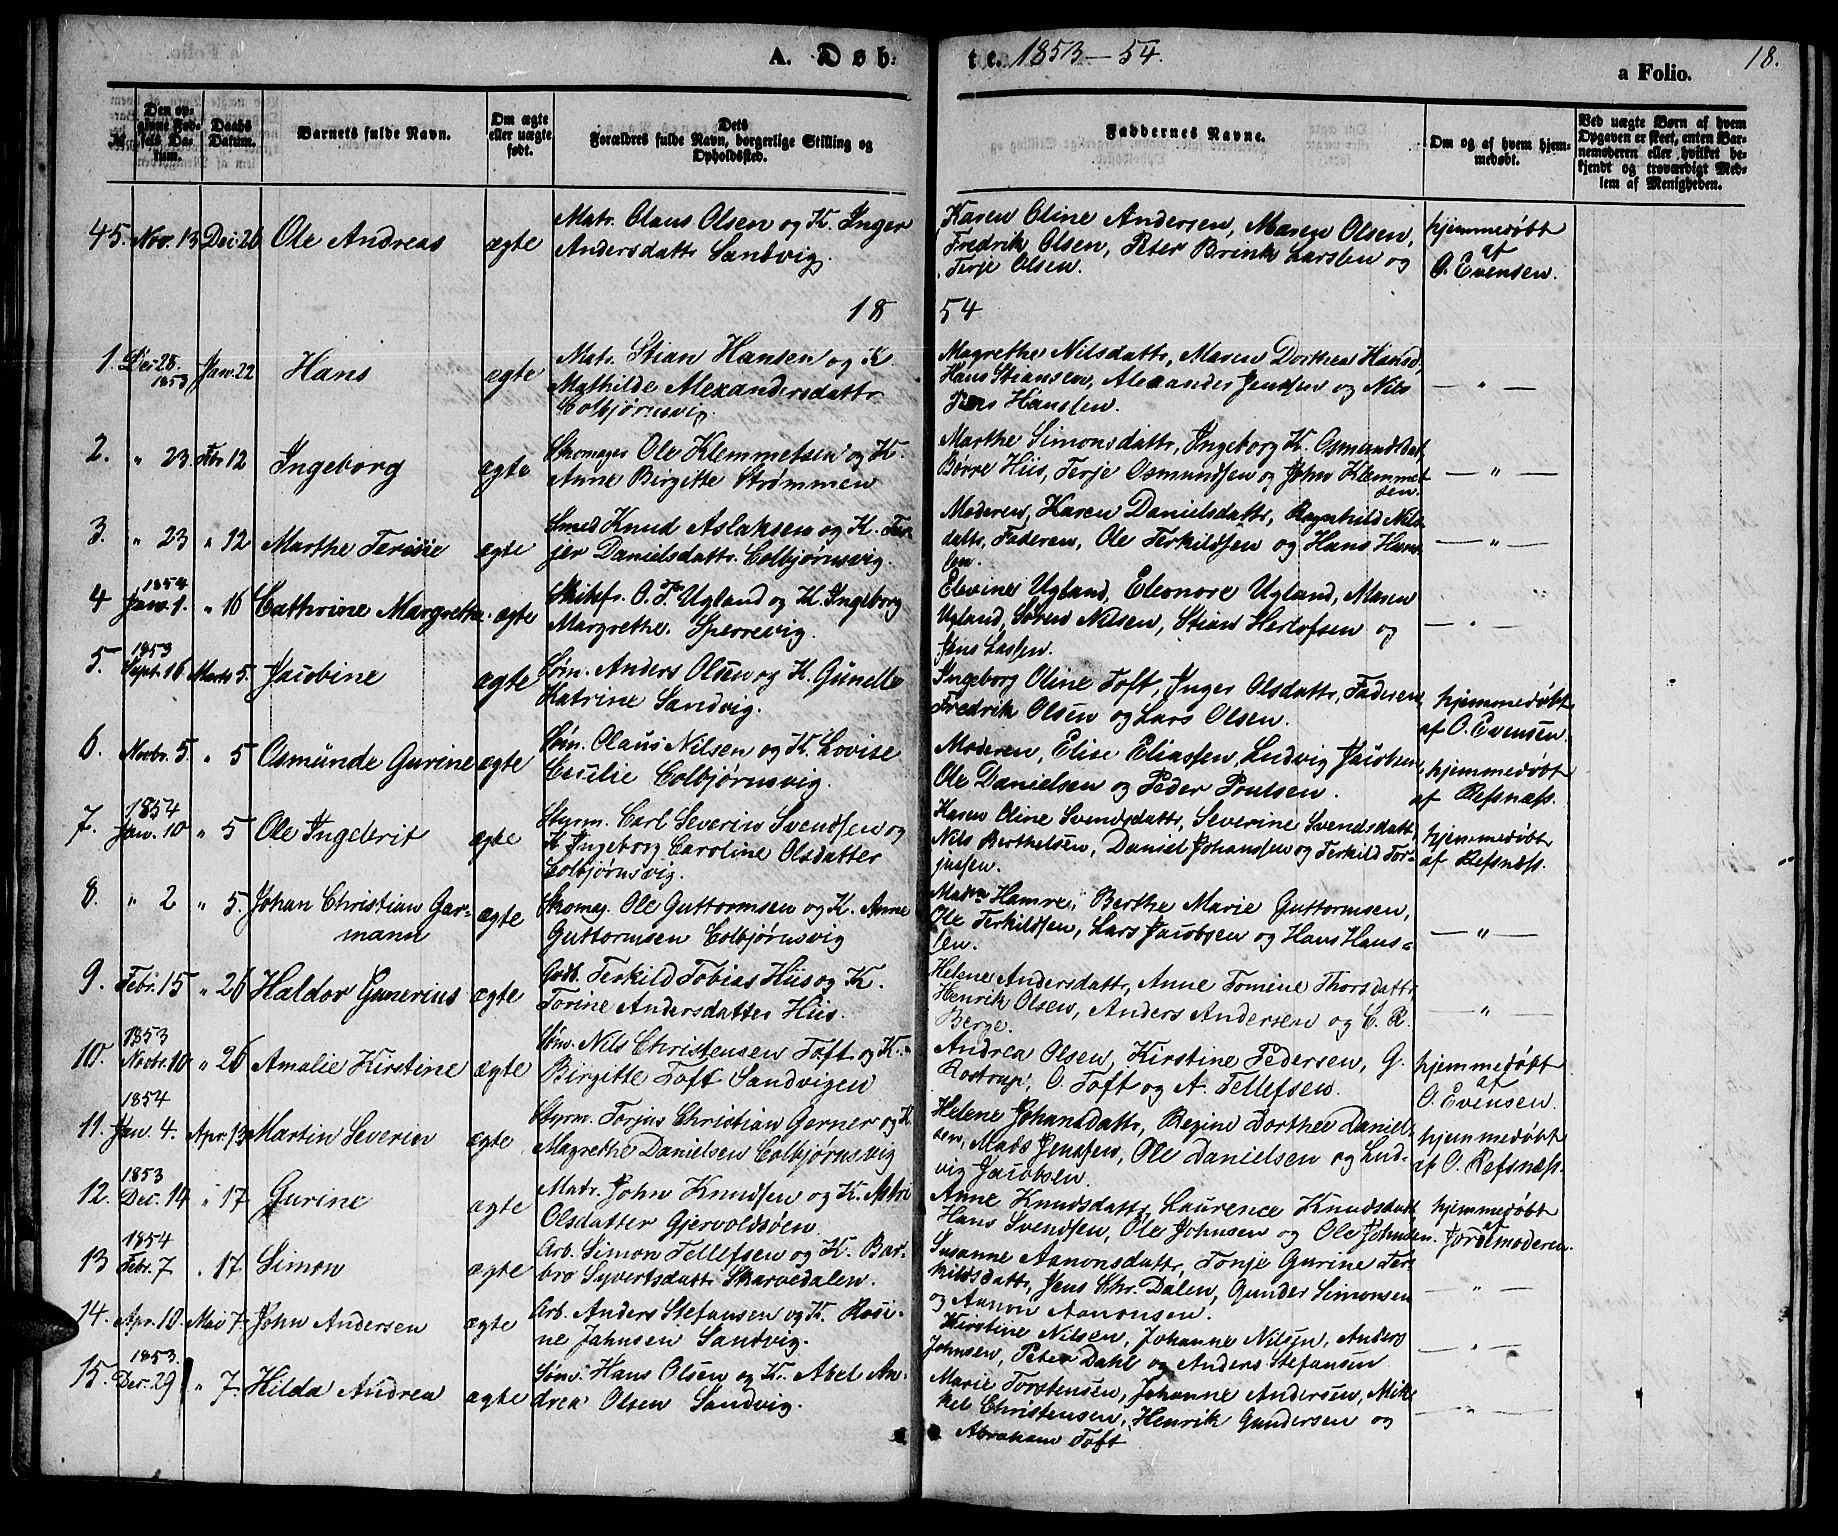 A. Døb:
te. 1853-54.
a Folio.
18.
№
Den op-
givne Fød-
sels Da-
tum.
Daabs
Datum.
Barnets fulde Navn.
Om ægte
eller uægte
født.
Dets
Forældres fulde Navn, borgerlige Stilling og
Opholdssted.
Faddernes Navne.
Om og af hvem hjem-
medøbt.
Ved uægte Børn af hvem
Opgaven er skeet, enten Bar-
nemoderen eller hvilket be-
kjendt og troværdigt Med-
lem af Menigheden.
45. Nov. 13 Dec. 26 Ole Andreas ægte
Matr. Olaus Olsen og K. Inger
Andersdattr Sandvig.
Karen Oline Andersen, Maren Olsen,
Fredrik Olsen, Peter Brink Larssen og
Terje Olsen.
hjemmedøbt
af
O. Evensen.
18 54
1. Dec 28. 1853 Jan. 22 Hans ægte
Matr. Stian Hansen og K.
Mathilde Alexandersdattr
Colbjørnsvig.
Magrethe Nilsdattr, Maren Dorthea Hansd,
Hans Stiansen, Alexander Jenssen og Nils
Hanssen.
— " —
2. " 23 Febr 12 Ingeborg ægte
Skomager Ole Klemmetsen og K.
Anne Birgitte Strømmen
Marthe Simonsdattr, Ingeborg K. Osmundsdat,
Børre Hiis, Terje Osmundsen og John Klemmet
sen.
— " —
3. " 23 " 12 Marthe Teresie ægte
Smed Knud Aslaksen og K. Ter-
jer Danielsdattr. Colbjørnsvig.
Moderen, Karen Danielsdattr, Ragnhild Nils
dattr, Faderen, Ole Terkildsen og Hans Hans
sen.
— " —
4 1854 Jan. 1. " 16 Cathrine Margrethe ægte
Skibsf. O. T. Ugland og K. Ingeborg
Margrethe. Sperrevig.
Elevine Ugland, Eleonore Ugland, Maren
Ugland, Søren Nilsen, Stian Herlofsen og
Jens Lassen.
— " —
5. 1853 Sept. 16 Marts 5. Jacobine ægte
Søm. Anders Olsen og K. Gunelle
Katrine Sandvig.
Ingeborg Oline Toft, Inger Olsdattr, Faderen,
Fredrik Olsen og Lars Olsen.
hjemmedøbt
af O. Evensen.
6. Novbr. 5. " 5 Osmunde Gurine ægte
Søm. Olaus Nilsen og K. Lovise
Cecilie Colbjørnsvig.
Moderen, Elise Eliassen, Ludvig Jacobsen,
Ole Danielsen og Peder Poulsen.
hjemmedøbt
af Refsnæs.
7. 1854 Jan. 10 " 5 Ole Ingebrit ægte
Styrm. Carl Severin Svendsen og
K Ingeborg Caroline Olsdatter
Colbjørnsvig.
Karen Oline Svendsdattr, Severine Svendsdatt,
Nils Berthelsen, Daniel Johanssen og Terkild Ter-
jussen.
hjemmedøbt
af Refsnæs.
8. " 2 " 5. Johan Christian Gar-
mann ægte
Skomag. Ole Guttormsen og K. Anne
Guttormsen Colbjørnsvig
Madm Hamre, Berthe Marie Guttormsen,
Ole Terkildsen, Lars Jacobsen og Hans Hans-
sen.
— " —
9. Febr. 15 " 26 Haldor Gunerius ægte
Gdb. Terkild Tobias Hiis og K.
Torine Andersdatter Hiis.
Helene Andersdattr, Anne Tomine Thorsdattr,
Henrik Olsen, Anders Andersen og C. R.
Berge.
— " —
10. 1853 Novbr. 10 " 26 Amalie Kirstine ægte
Søm. Nils Christensen Toft og K.
Birgitte Toft Sandvigen
Andrea Olsen, Kirstine Pedersen, G.
Rostrup, O. Toft og A. Tellefsen.
hjemmedøbt
af
O. Evensen.
11. 1854 Jan. 4. Apr. 13 Martin Severin ægte
Styrm. Torjus Christian Gerner og K.
Magrethe Danielsen Colbjørnsvig
Helene Johansdattr, Regine Dorthea Daniel-
sen, Mads Jenssen, Ole Danielsen og Lud-
vig Jacobsen.
hjemmedøbt
af O. Refsnæs.
12. 1853 Dec. 14 " 17 Gurine ægte
Matr. John Knudsen og K. Astri
Olsdatter Gjervoldsøen.
Anne Knudsdattr, Laurence Knudsdatt
Hans Svendsen, Ole Johnsen og Ole Johnsen.
hjemmedøbt
af
Jordemoderen.
13 1854 Febr. 7 " 17 Simon ægte
Arb. Simon Tellefsen og K. Bar-
bro Syvertsdattr Skarvedalen.
Susanne Aanonsdattr, Tonje Gurine Ter-
kildsdattr, Jens Chr. Dalen, Gunder Simonsen
og Aanon Aanonsen.
— " —
14. Apr. 10. Mai 7. John Andersen ægte
Arb. Anders Stefansen og K. Rosi-
ne Jahnsen Sandvig.
Kirstine Nilsen, Johanne Nilsen, Anders
Johnsen, Peter Dahl og Anders Stefansen.
— " —
15. 1853. Dec. 29 " 7. Hilda Andrea ægte
Søm. Hans Olsen og K. Abel An-
drea Olsen Sandvig.
Marie Torstensen, Johanne Andersen, Mik-
kel Christensen, Henrik Gundersen og
Abraham Toft
— " —